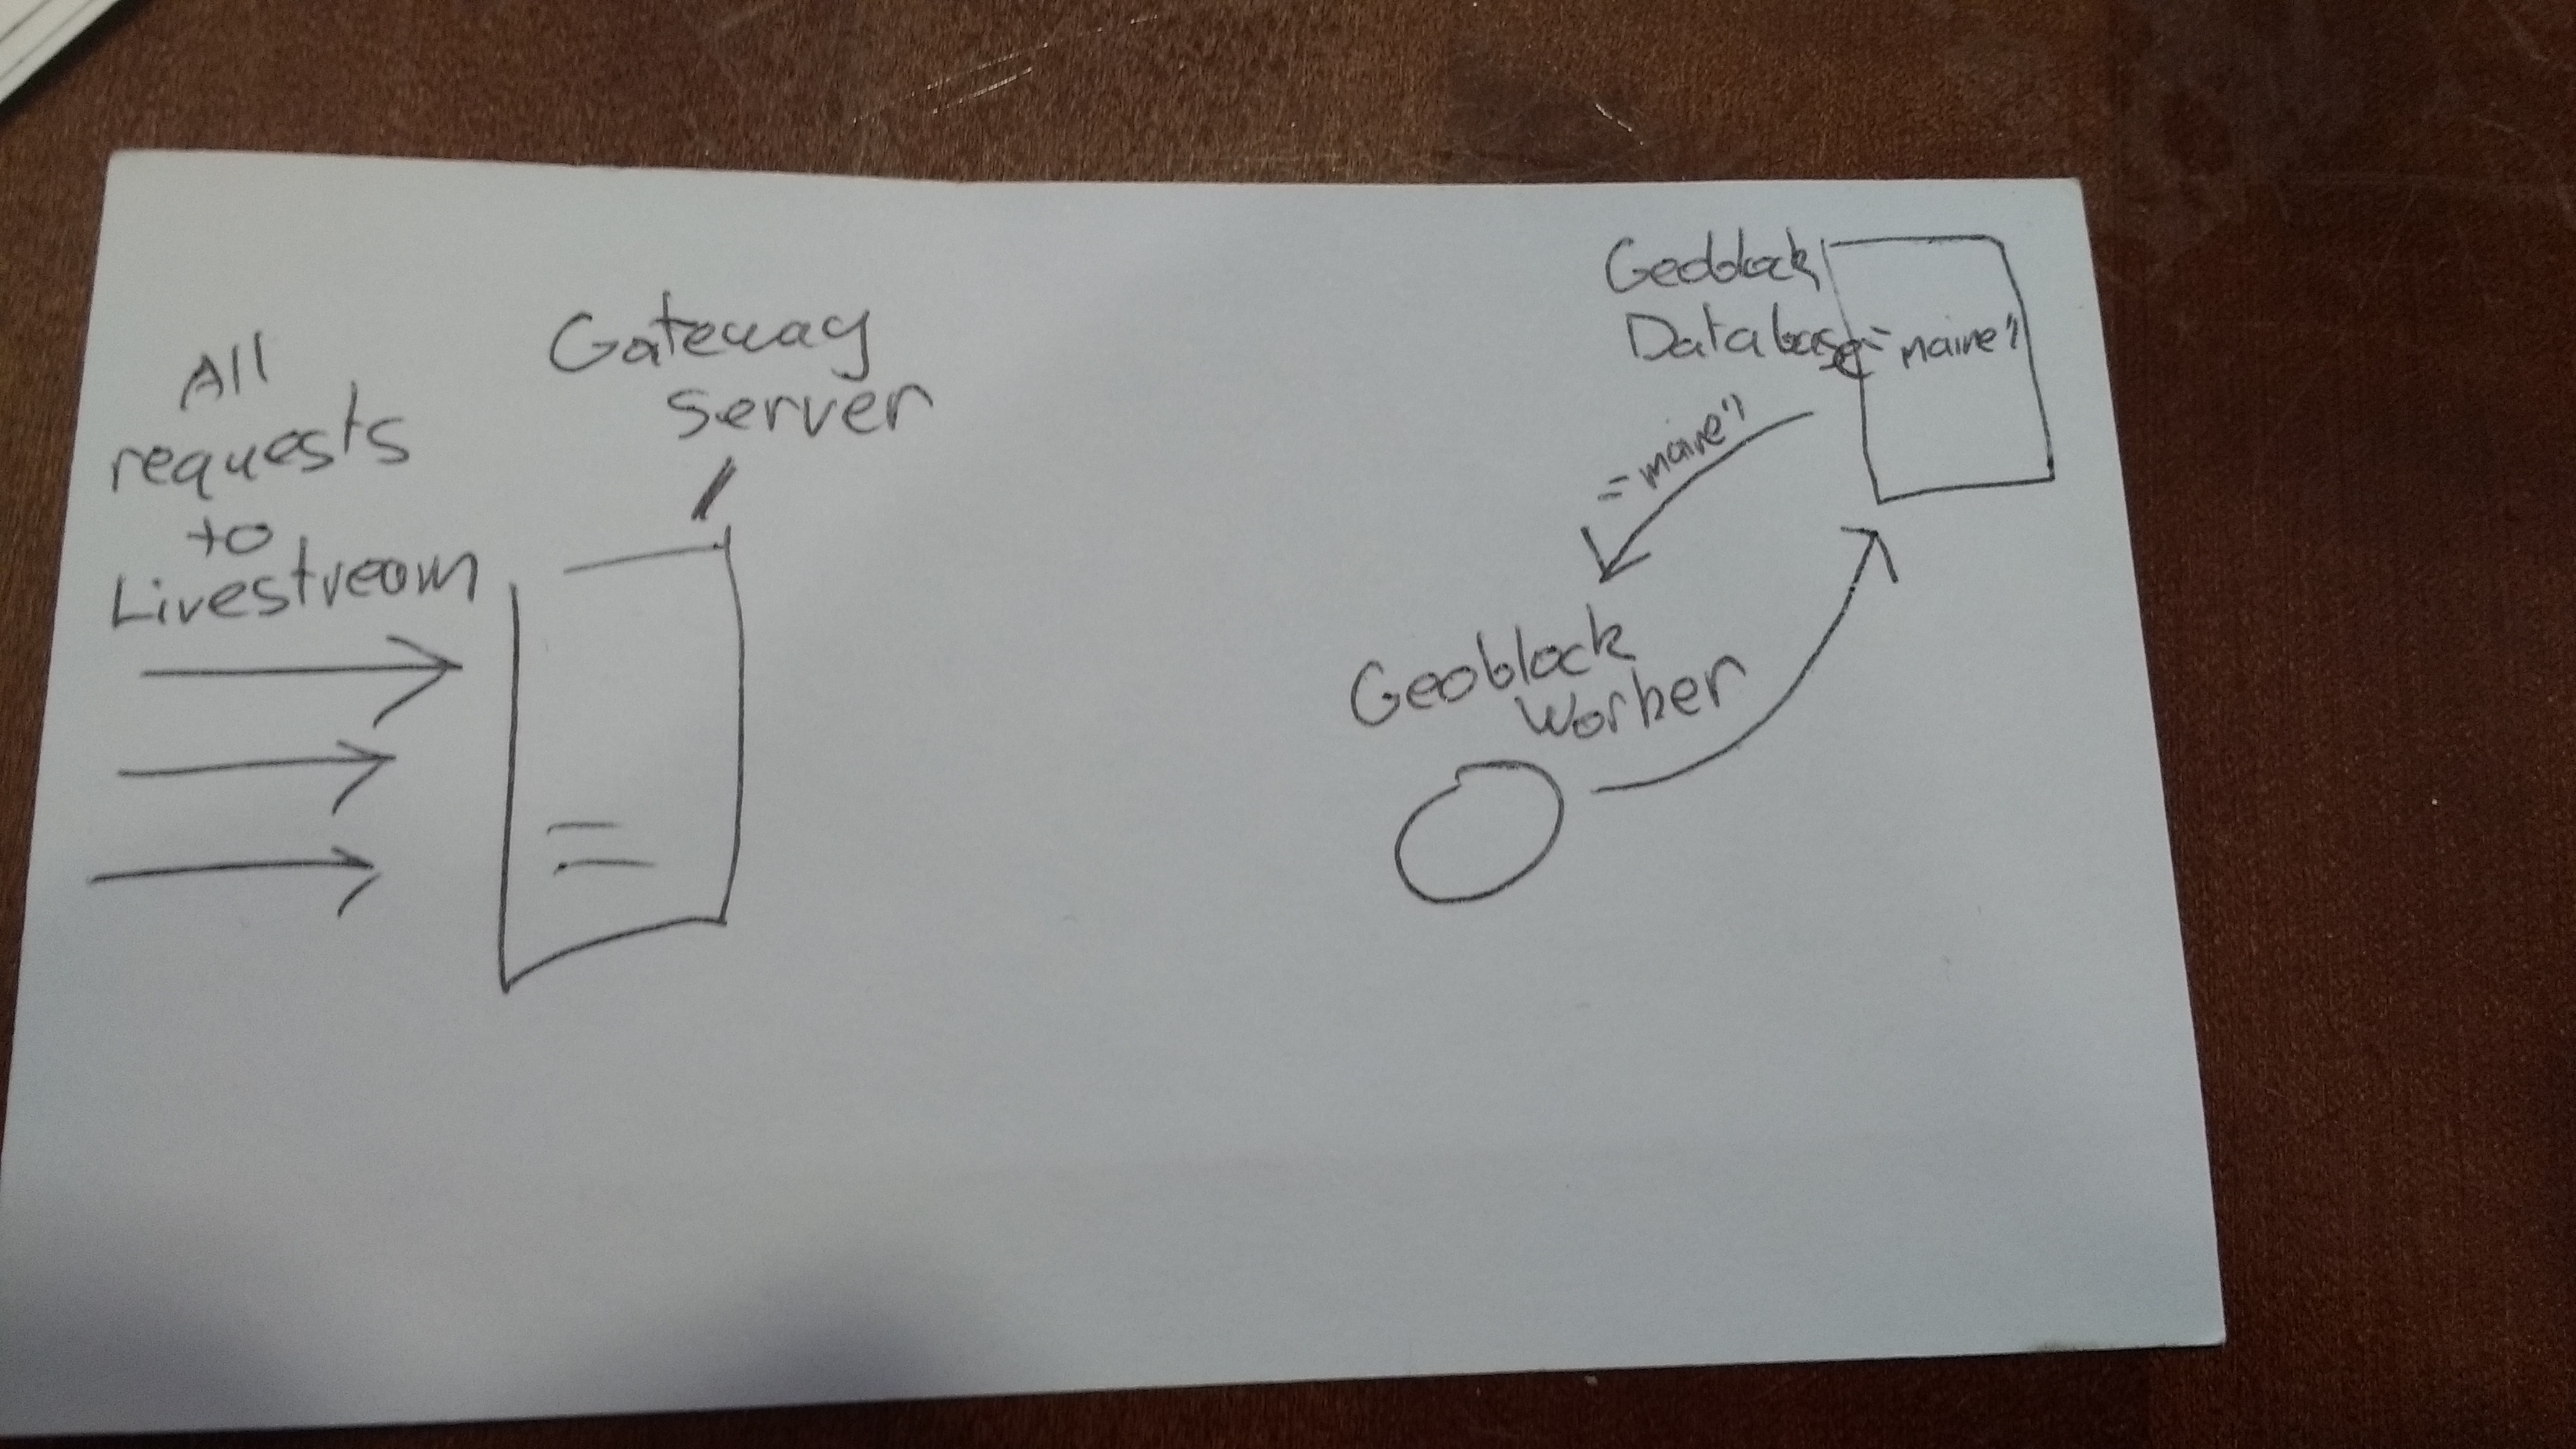 All
requests
to
Livestream
Gateway
Server
Geoblock
Database
"maine"
"maine"
Geoblock
Worker